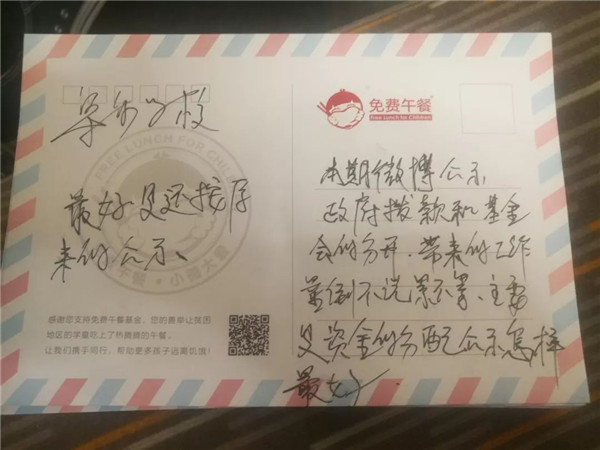 学校
最好是还按原
来的公示、
FREE LUNCH FOR CHIL
午餐·小鸥大爱
感谢您支持免费午餐基金，您的善举让贫困
地区的学童吃上了热腾腾的午餐，
让我们携手同行，帮助更多孩子远离饥饿！
免费午餐
Free Lunch for Children
本期微博公示
政府拨款和基金
会的分开、带来的工作
量倒不说累不累、主要
是资金的分配公示怎样
最好